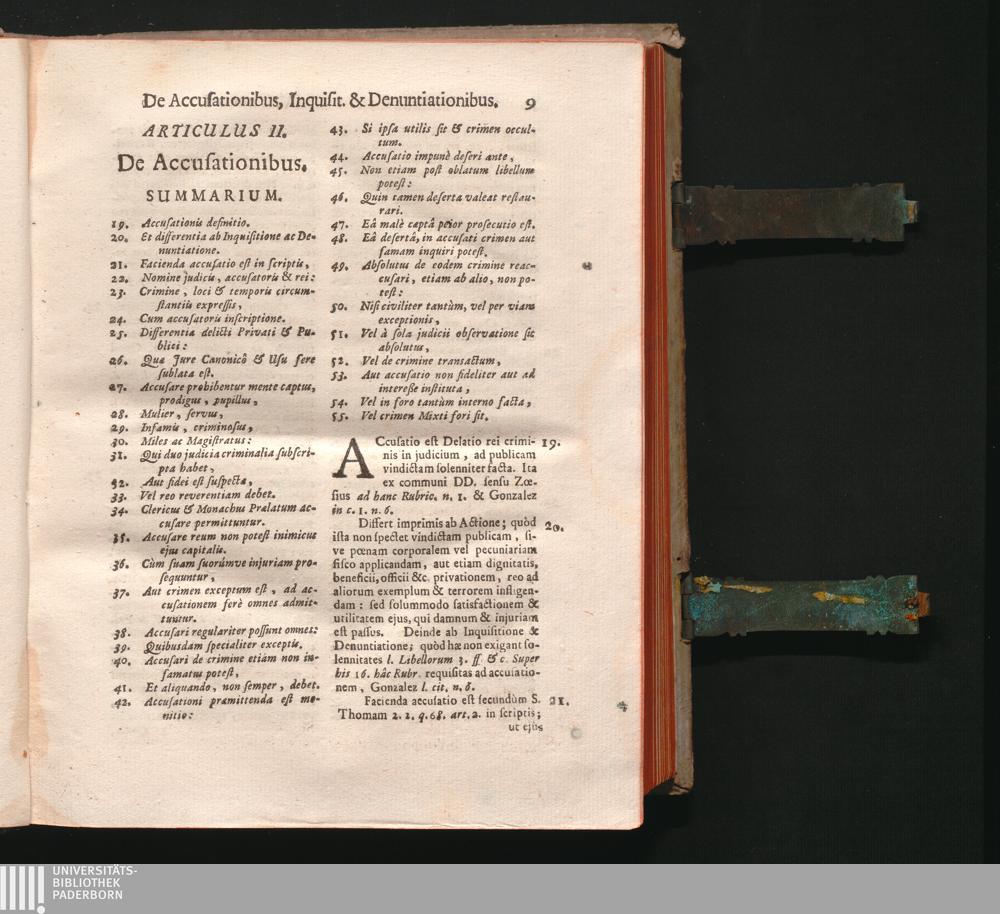 De Accusationibus, Inquisit. & Denuntiationibus. 9
ARTICULUS II.
De Accusationibus.
SUMMARIUM.
19. Accusationis definitio.
20. Et differentia ab Inquisitione ac De-
nuntiatione.
21. Facienda accusatio est in scriptis,
22. Nomine judicis, accusatoris & rei:
23. Crimine, loci & temporis circum-
stantiis expressis,
24. Cum accusatoris inscriptione.
25. Differentia delicti Privati & Pu-
blici:
26. Quæ Jure Canonicô & Usu fere
sublata est.
27. Accusare prohibentur mente captus,
prodigus, pupillus,
28. Mulier, servus,
29. Infamis, criminosus,
30. Miles ac Magistratus:
31. Qui duo judicia criminalia subscri-
pta habet,
32. Aut fidei est suspecta,
33. Vel reo reverentiam debet.
34. Clericus & Monachus Prælatum ac-
cusare permittuntur.
35. Accusare reum non potest inimicus
ejus capitalis.
36. Cùm suam suorúmve injuriam pro-
sequuntur,
37. Aut crimen exceptum est, ad ac-
cusationem ferè omnes admit-
tuntur.
38. Accusari regulariter possunt omnes:
39. Quibusdam specialiter exceptis.
40. Accusari de crimine etiam non in-
famatus potest,
41. Et aliquando, non semper, debet.
42. Accusationi præmittenda est mo-
nitio:
43. Si ipsa utilis sit & crimen occul-
tum.
44. Accusatio impunè deseri ante,
45. Non etiam post oblatum libellum
potest:
46. Quin tamen deserta valeat restau-
rari.
47. Eâ malè captâ peior prosecutio est.
48. Eâ desertâ, in accusati crimen aut
famam inquiri potest.
49. Absolutus de eodem crimine reac-
cusari, etiam ab alio, non po-
test:
50. Nisi civiliter tantùm, vel per viam
exceptionis,
51. Vel à sola judicii observatione sit
absolutus,
52. Vel de crimine transactum,
53. Aut accusatio non fideliter aut ad
interesse instituta,
54. Vel in foro tantùm interno facta,
55. Vel crimen Mixti fori sit.
ACcusatio est Delatio rei crimi- 19.
nis in judicium, ad publicam
vindictam solenniter facta. Ita
ex communi DD. sensu Zœ-
sius ad hanc Rubric. n. 1. & Gonzalez
in c. 1. n. 6.
Differt imprimis ab Actione; quòd 20.
ista non spectet vindictam publicam, si-
ve pœnam corporalem vel pecuniariam
fisco applicandam, aut etiam dignitatis,
beneficii, officii &c. privationem, reo ad
aliorum exemplum & terrorem infligen-
dam: sed solummodo satisfactionem &
utilitatem ejus, qui damnum & injuriam
est passus. Deinde ab Inquisitione &
Denuntiatione; quòd hæ non exigant so-
lennitates l. Libellorum 3. ff & c. Super
his 16. hâc Rubr. requisitas ad accusatio-
nem, Gonzalez l. cit. n. 6.
Facienda accusatio est secundùm S. 21.
Thomam 2. 2. q. 68. art. 2. in scriptis;
ut ejus
UNIVERSITÄTS-
BIBLIOTHEK
PADERBORN